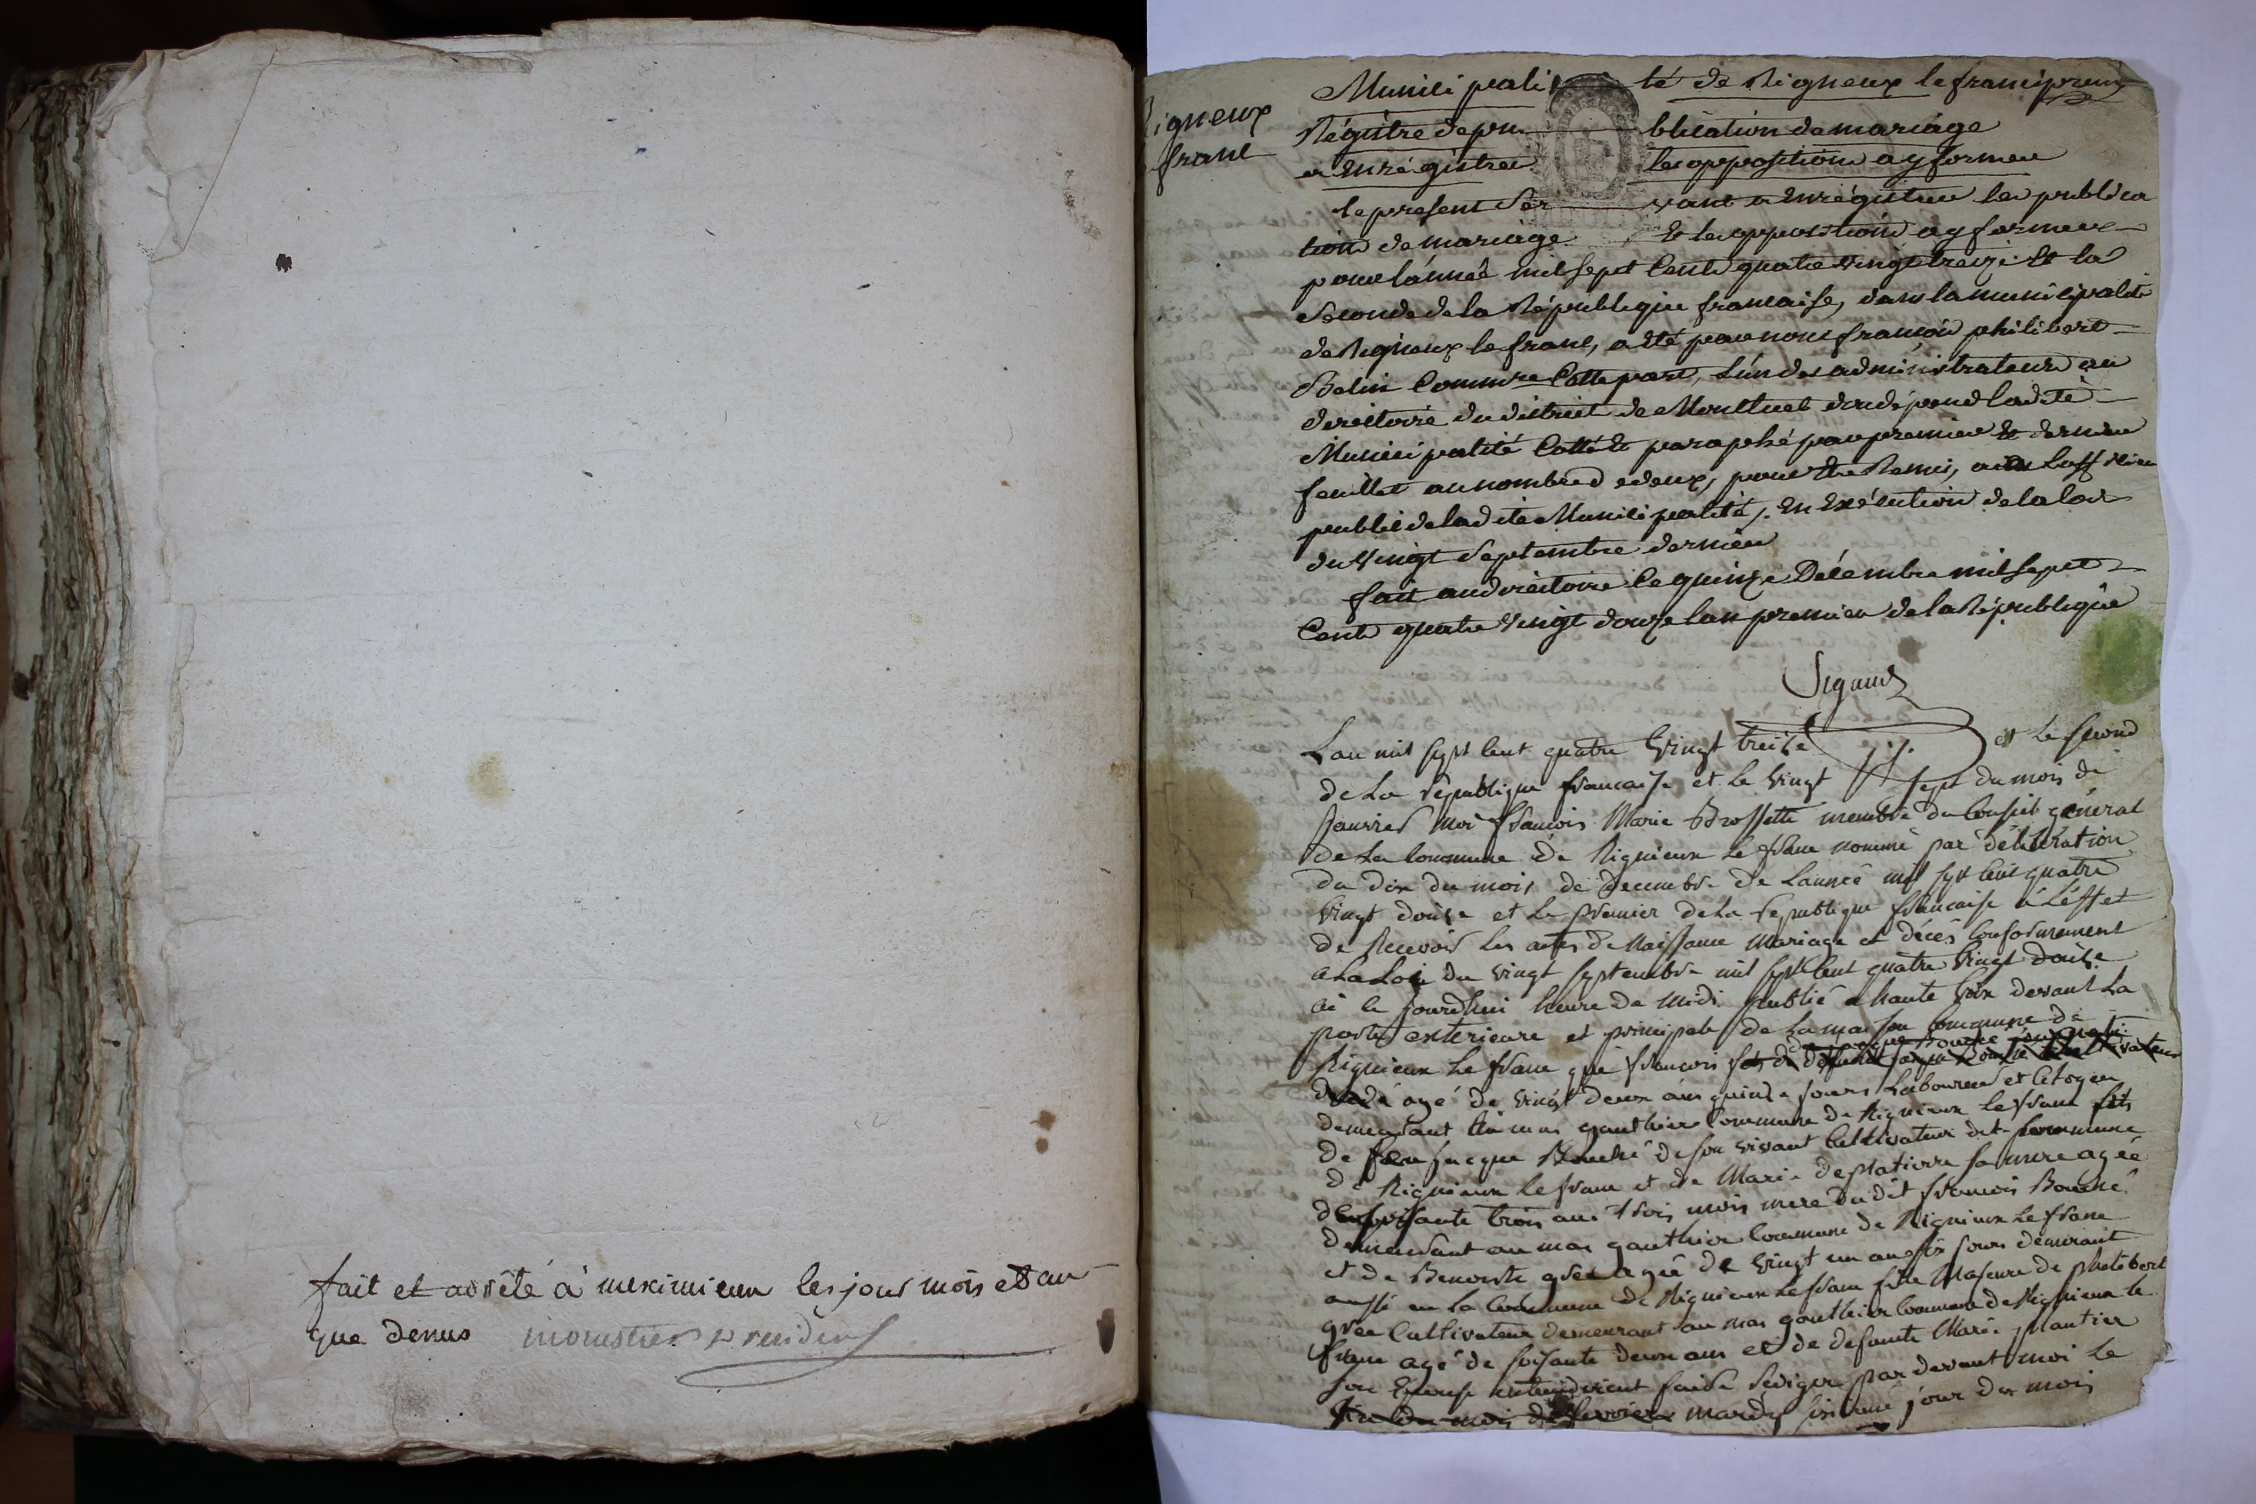 fait et arrêté à meximieux les jour mois et an
que denus monestier president
Rigneux
le franc
Municipalité de Rigneux le franc
Régistre de publication de mariage
a enrégistrer les oppositions a y former
le présent servant a enrégistrer les publica
tions de mariage et les oppositions a y former
pour l'année mil sept cent quatre vingt treize et la
seconde de la République francaise, dans la municipalité
de Rigneux le franc, a été par nous francois philibert
Belin Commre Cette part, l'un des administrateurs au
directoire du district de Montluel dont dépend ladite
Municipalité Cotté et paraphé par premier et dernier
feuillet au nombre de deux, pour etre Remis, a l'officier
public de ladite Municipalité, en exécution de la loi
du vingt septembre dernier
fait au directoire le quinze Décembre mil sept
Cent quatre vingt douze l'an premier de la République
Sigaud
L'an mil sept cent quatre vingt treize et le second
de la république francaise et le vingt sept du mois de
Janvier moi francois Marie Brossette membre du conseil général
de la commune de Rignieux le franc nommé par délibération
du dix du mois de decembre de l'année mil sept cent quatre
vingt douze et le premier de la republique francaise à l'effet
de recevoir les actes de Naissance Mariage et décès conformément
a la Loi du vingt septembre mil sept cent quatre vingt douze
ai ce jourdhui heure de midi publié a haute voix devant la
porte exterieure et principale de la maison commune de
Rignieux le franc que francois fils de defunt
agé de vingt deux ans quinze jours laboureur et citoyen
demeurant au mas gauthier commune de Rignieux le franc fils
de feu jacque Bouché de son vivant cultivateur dit commune
de Rignieux le franc et de Marie deplatierre sa mere agée
de soisante trois ans trois mois mere du dit francois Bouché
demeurant au mas gauthier commune de Rignieux le franc
et de Benoiste grée agée de vingt un an six jours demeurant
aussi en la commune de Rignieux le franc fille Majeure de philibert
grée cultivateur demeurant au mas gauthier commune de Rignieux le
franc agé de soisante deux ans et de defunte Marie plantier
son Epouse entendoient faire rediger par devant moi le
mois de fevrier mardy cinquième jour du mois